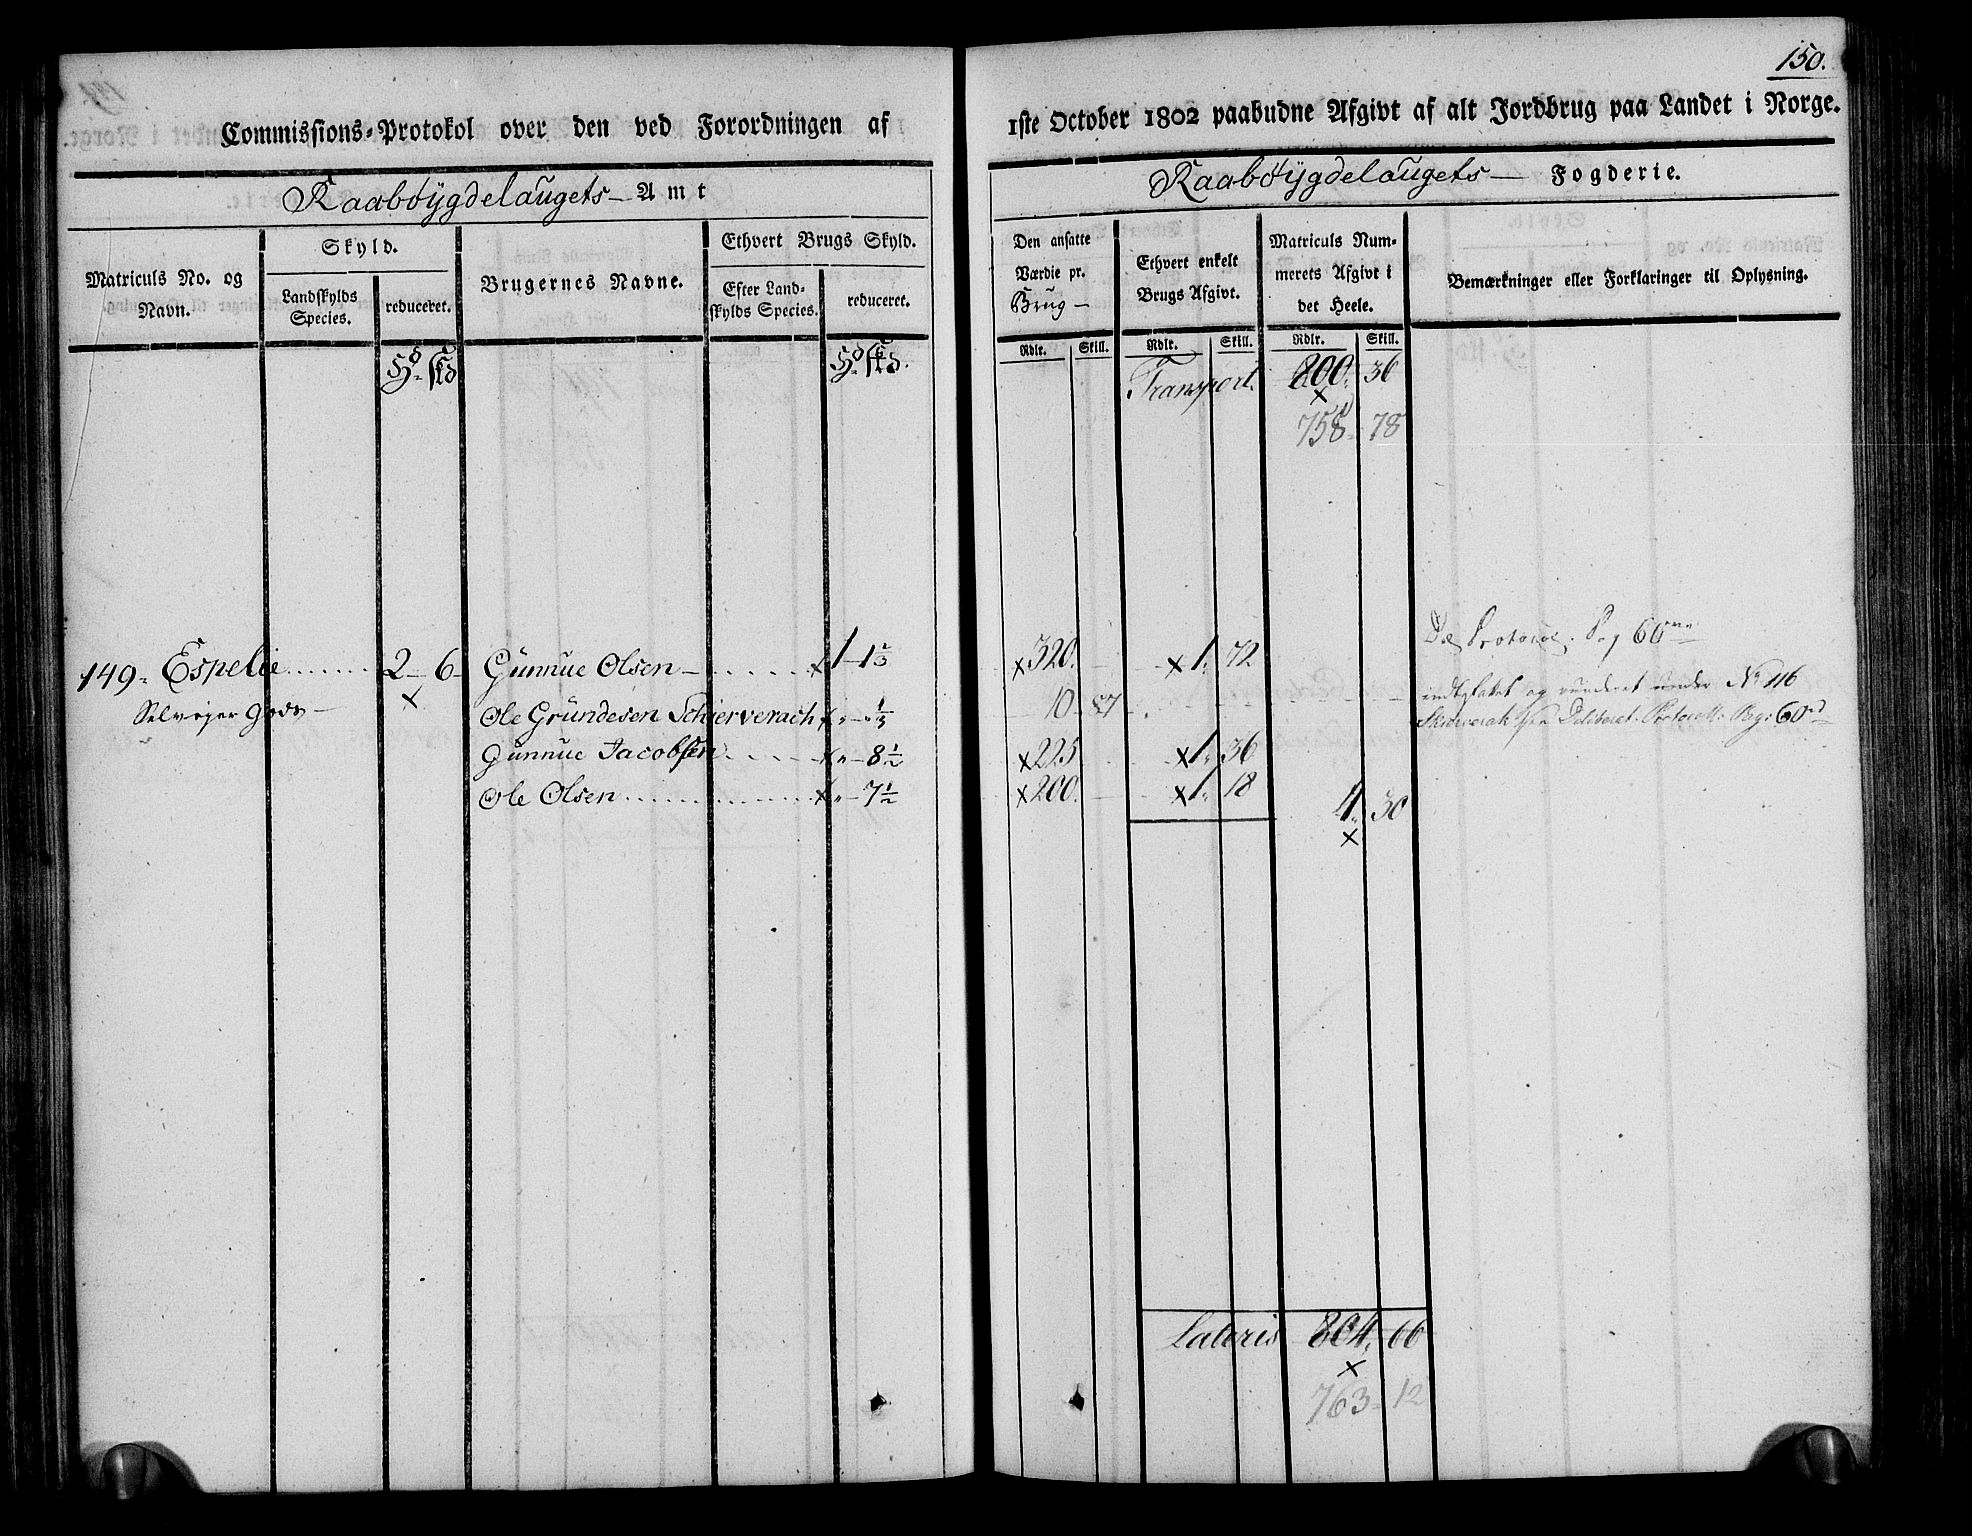 150.
Commissions-Protokol over den ved Forordningen af 1ste October 1802 paabudne Afgivt af alt Jordbrug paa Landet i Norge.
Raabøÿgdelaugets Amt
Raabøÿgdelaugets Fogderie.
Matriculs No. og Navn.
Skyld.
Landskylds Species.
reduceret.
Brugernes Navne.
Ethvert Brugs Skyld.
Efter Landskylds Species.
reduceret.
Den ansatte Værdie pr. Brug
Ethvert enkelt Brugs Afgivt.
Matriculs Nummerets Afgivt i det Heele.
Bemærkninger eller Forklaringer til Oplysning.
Rdlr. Skill. Rdlr. Skill. Rdlr. Skill.
Transport. 800. 36
x
758 78
Protocol. Pag 60
149 Espelie 2 6 Gunnue Olsen x 1 1 1/3 x 320. x 1. 72
Selvejer Gods x Ole Grundesen Schierverach x " 1/3 10 87 under No 116
Pag: 60
Gunnue Jacobsen x " 8 1/2 x 225 x 1. 36
Ole Olsen x " 7 1/2 x 200. x 1. 18 4. 30
x
Lateris 804. 66
x
763 12